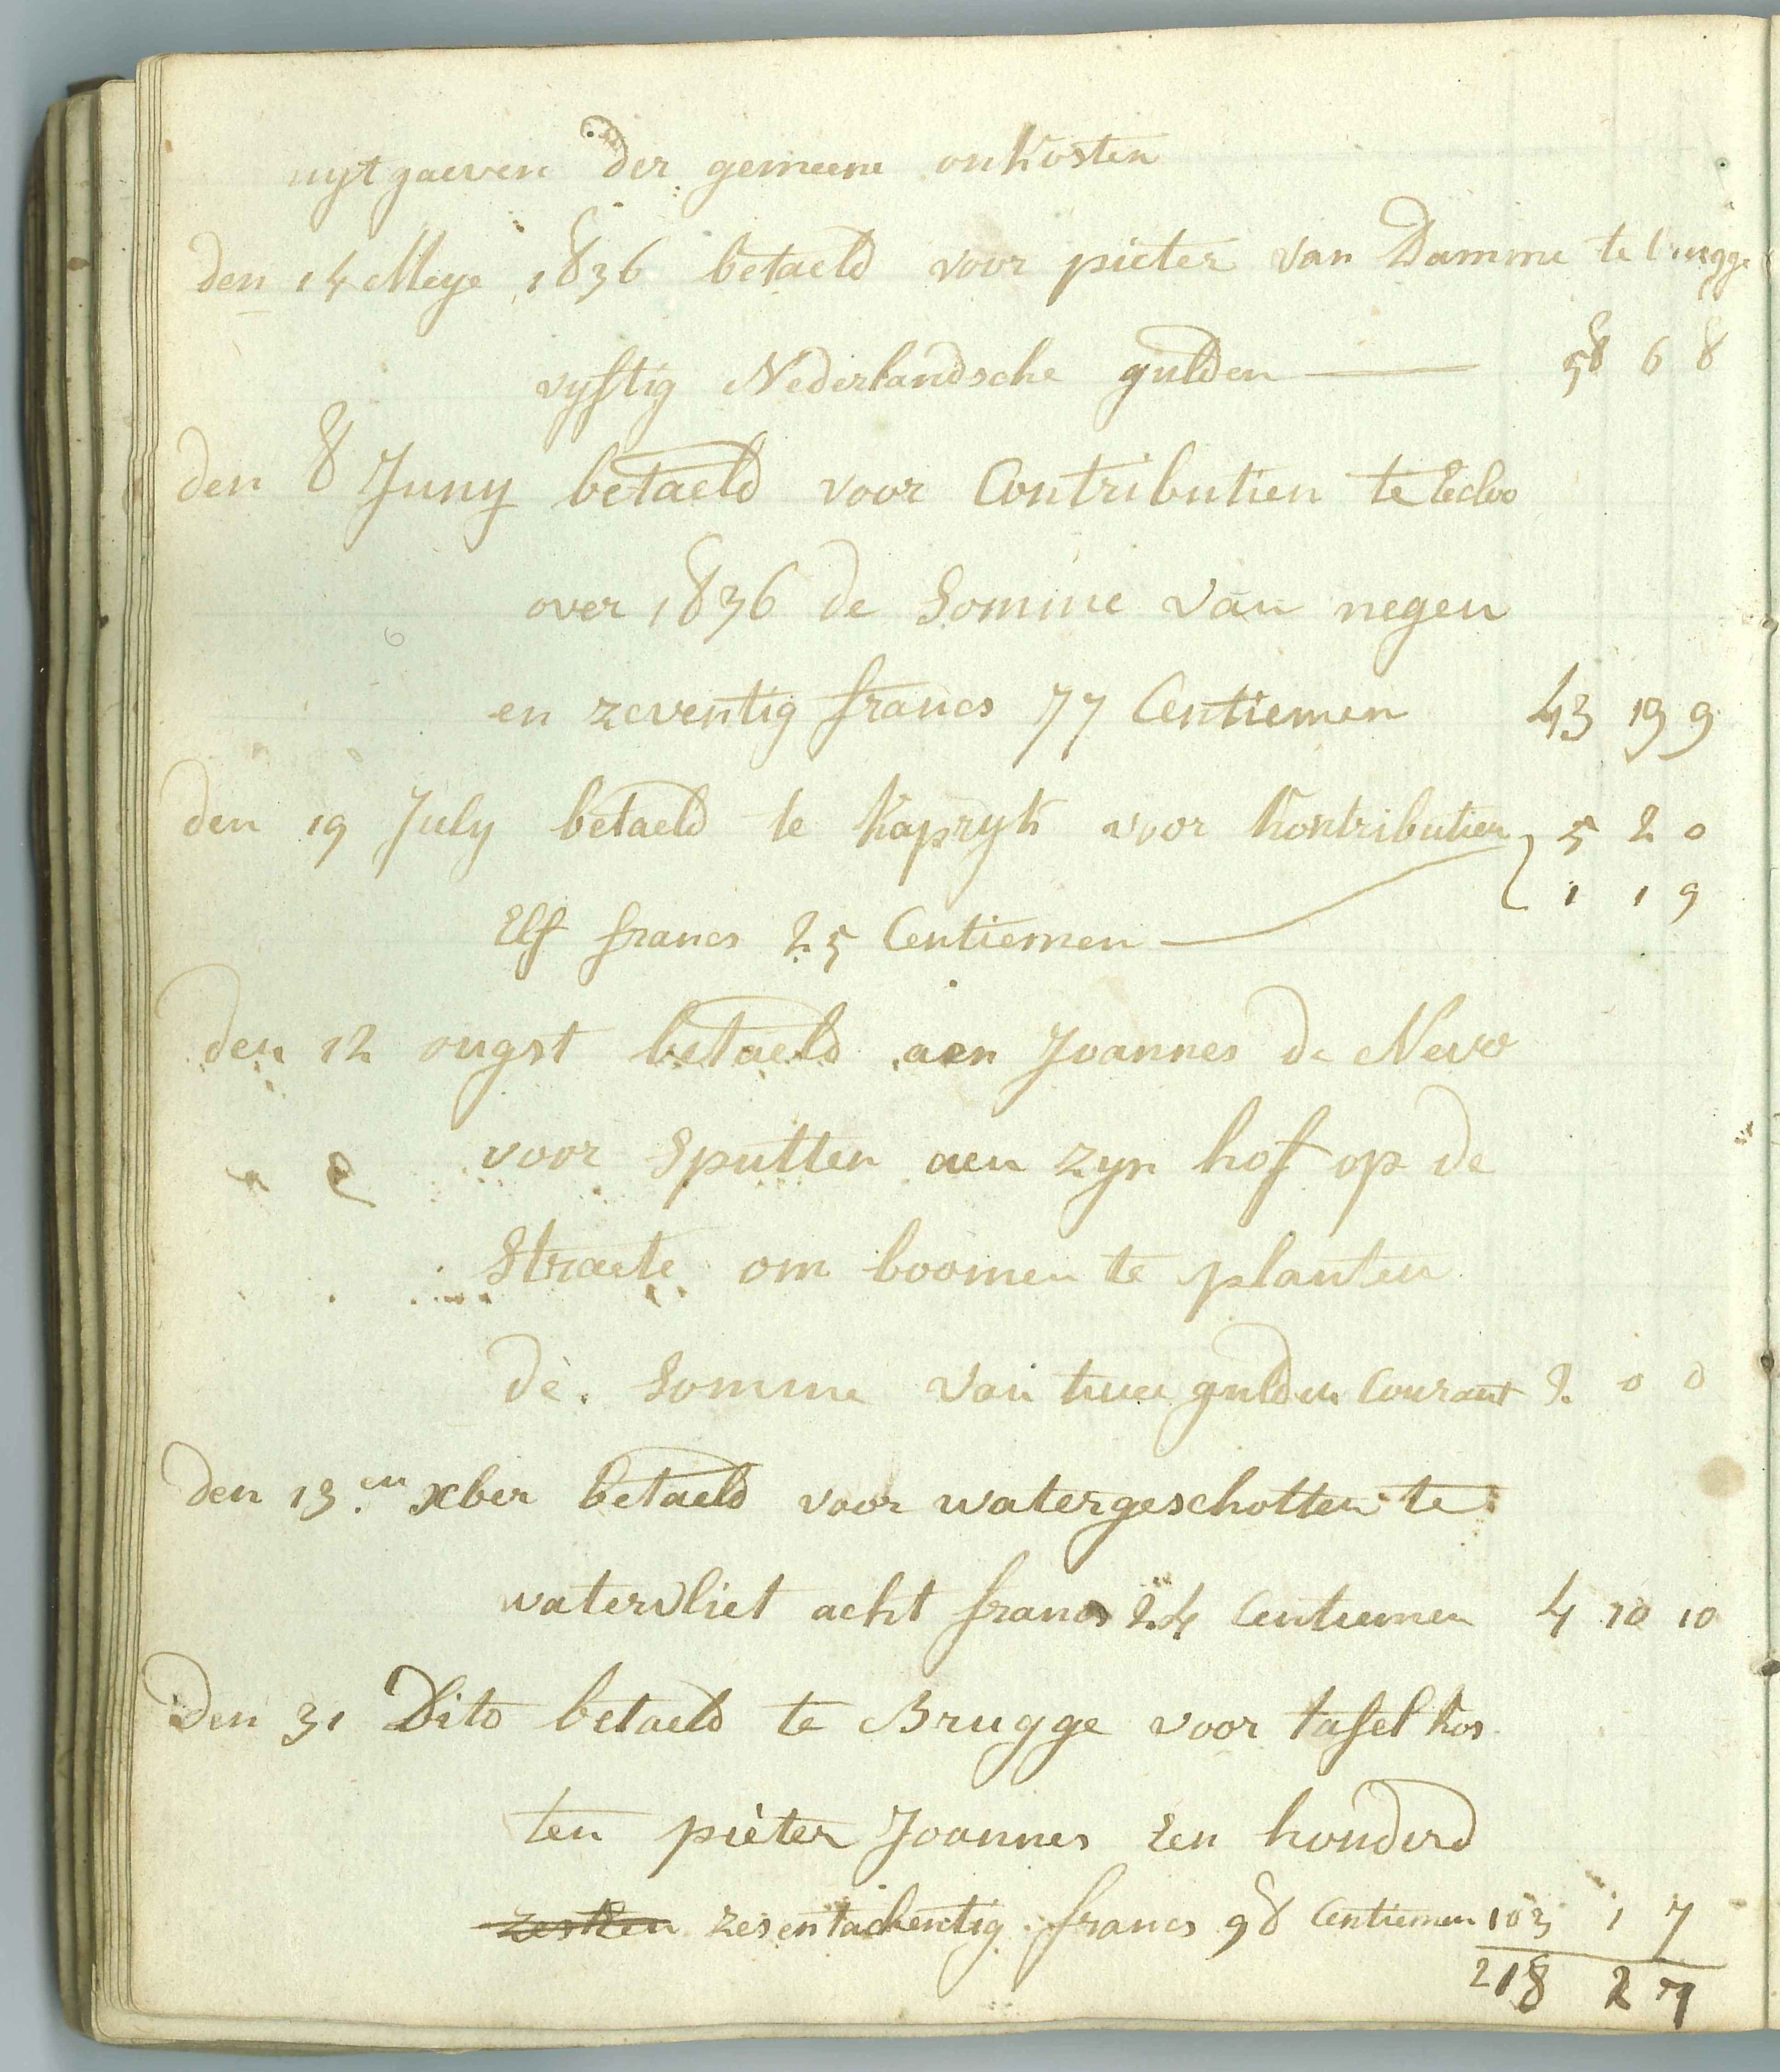 uytgaeven der gemeene onkosten
den 14 Meye 1836 betaeld voor pieter van Damme te brugge
vyftig Nederlandsche gulden — 58 6 8
den 8 Juny betaeld voor Contributien te Ecloo
over 1836 de Somme van negen
en zeventig francs 77 Centiemen 43 19 9
den 19 July betaeld te Kapryk voor Kontributien 5 2 0
1 1 9
Elf francs 25 Centiemen —
den 12 ougst betaeld aen Joannes de Neve
voor Sputten aen zyn hof op de
Straete om boomen te planten
de Somme van twee gulden Courant 2 0 0
den 13.en xber betaeld voor watergeschotten te
watervliet acht francs 24 Centiemen 4 10 10
Den 31 Dito betaeld te Brugge voor tafel kos
ten pieter Joannes Een honderd
zestien zesentachentig francs 98 Centiemen 103 1 7
218 2 7